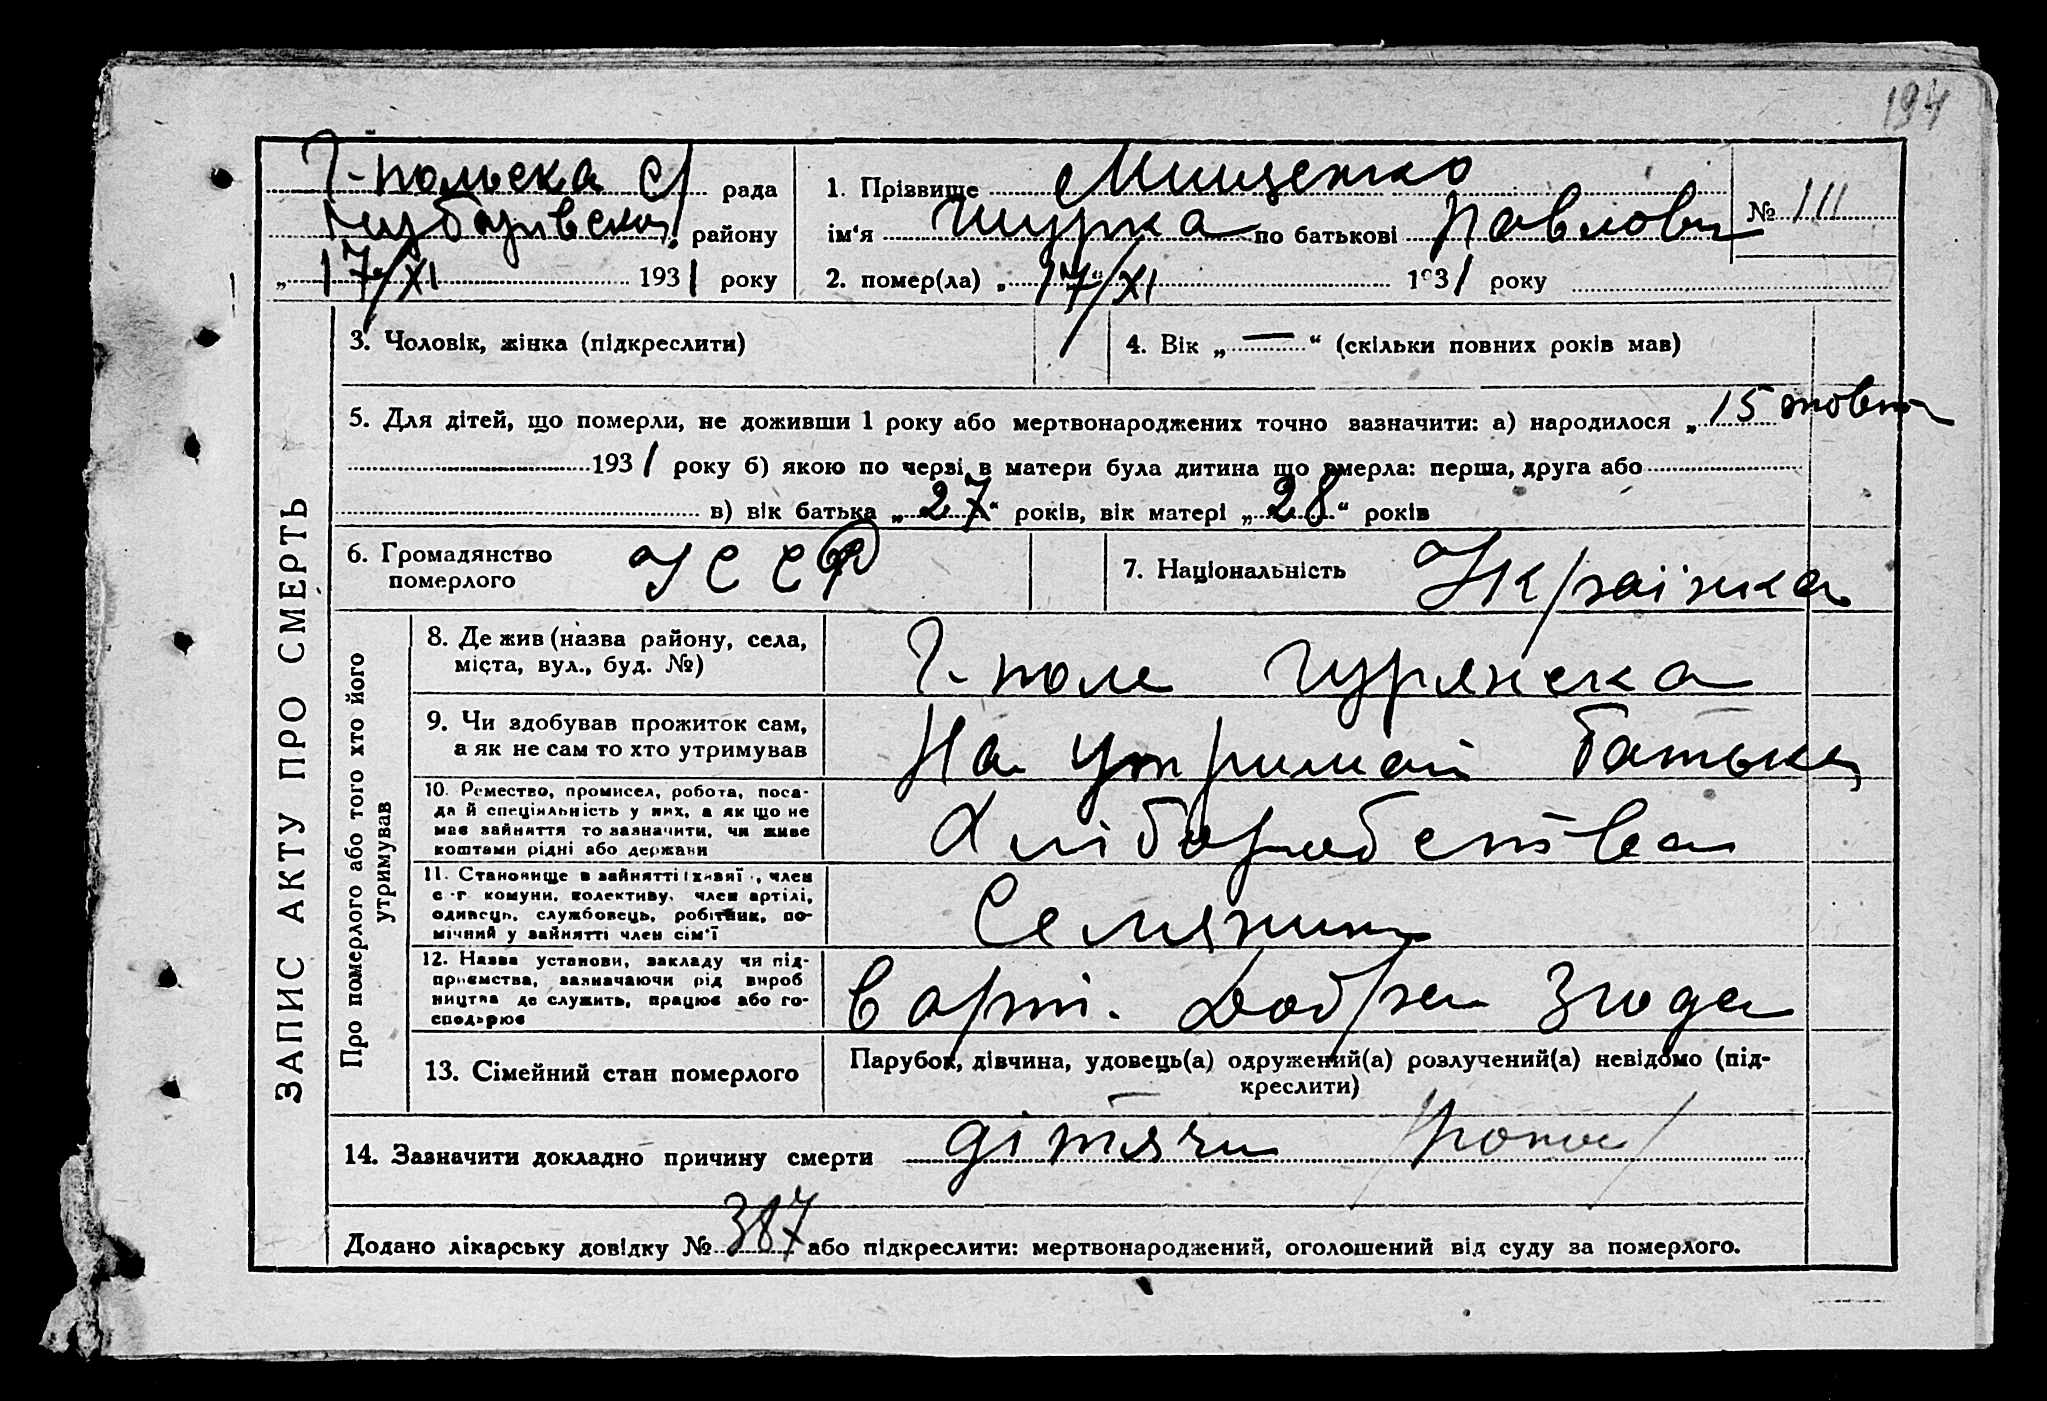 194
Г-польска с/ рада
району
„ 17/XI 1931 року
1. Прізвище Мищенко
ім'я Шурка по батькові Павлови
№ 111
2. помер(ла) „ 17/XI 1931 року
3. Чоловік, жінка (підкреслити)
4. Вік „ — “ (скільки повних років мав)
5. Для дітей, що померли, не доживши 1 року або мертвонароджених точно зазначити: а) народилося „ 15 жовтня
1931 року б) якою по черві в матери була дитина що вмерла: перша, друга або
в) вік батька „ 27 “ років, вік матері „ 28 “ років
6. Громадянство
померлого
УССР
7. Національність Українка
ЗАПИС АКТУ ПРО СМЕРТЬ
Про померлого або того хто його
утримував
8. Де жив (назва району, села,
міста, вул., буд. №)
Г-поле Гурянска
9. Чи здобував прожиток сам,
а як не сам то хто утримував
На утриман батька
10. Ремество, промисел, робота, поса-
да й спеціяльність у них, а як що не
має зайняття то зазначити, чи живе
коштами рідні або держави
Хліборобства
11. Становище в зайнятті (хазяї , член
с -г комуни, колективу, член артілі,
одинець, службовець, робітник, по-
мічний у зайнятті член сім'ї
Селянин
12. Назва установи, закладу чи під-
приємства, зазначаючи рід вироб
ництва де служить, працює або го-
сподарює
в арт. Добра Згода
13. Сімейний стан померлого
Парубок, дівчина, удовець(а) одружений(а) розлучений(а) невідомо (під-
креслити)
14. Зазначити докладно причину смерти дітячи
Додано лікарську довідку № 387 або підкреслити: мертвонароджений, оголошений від суду за померлого.